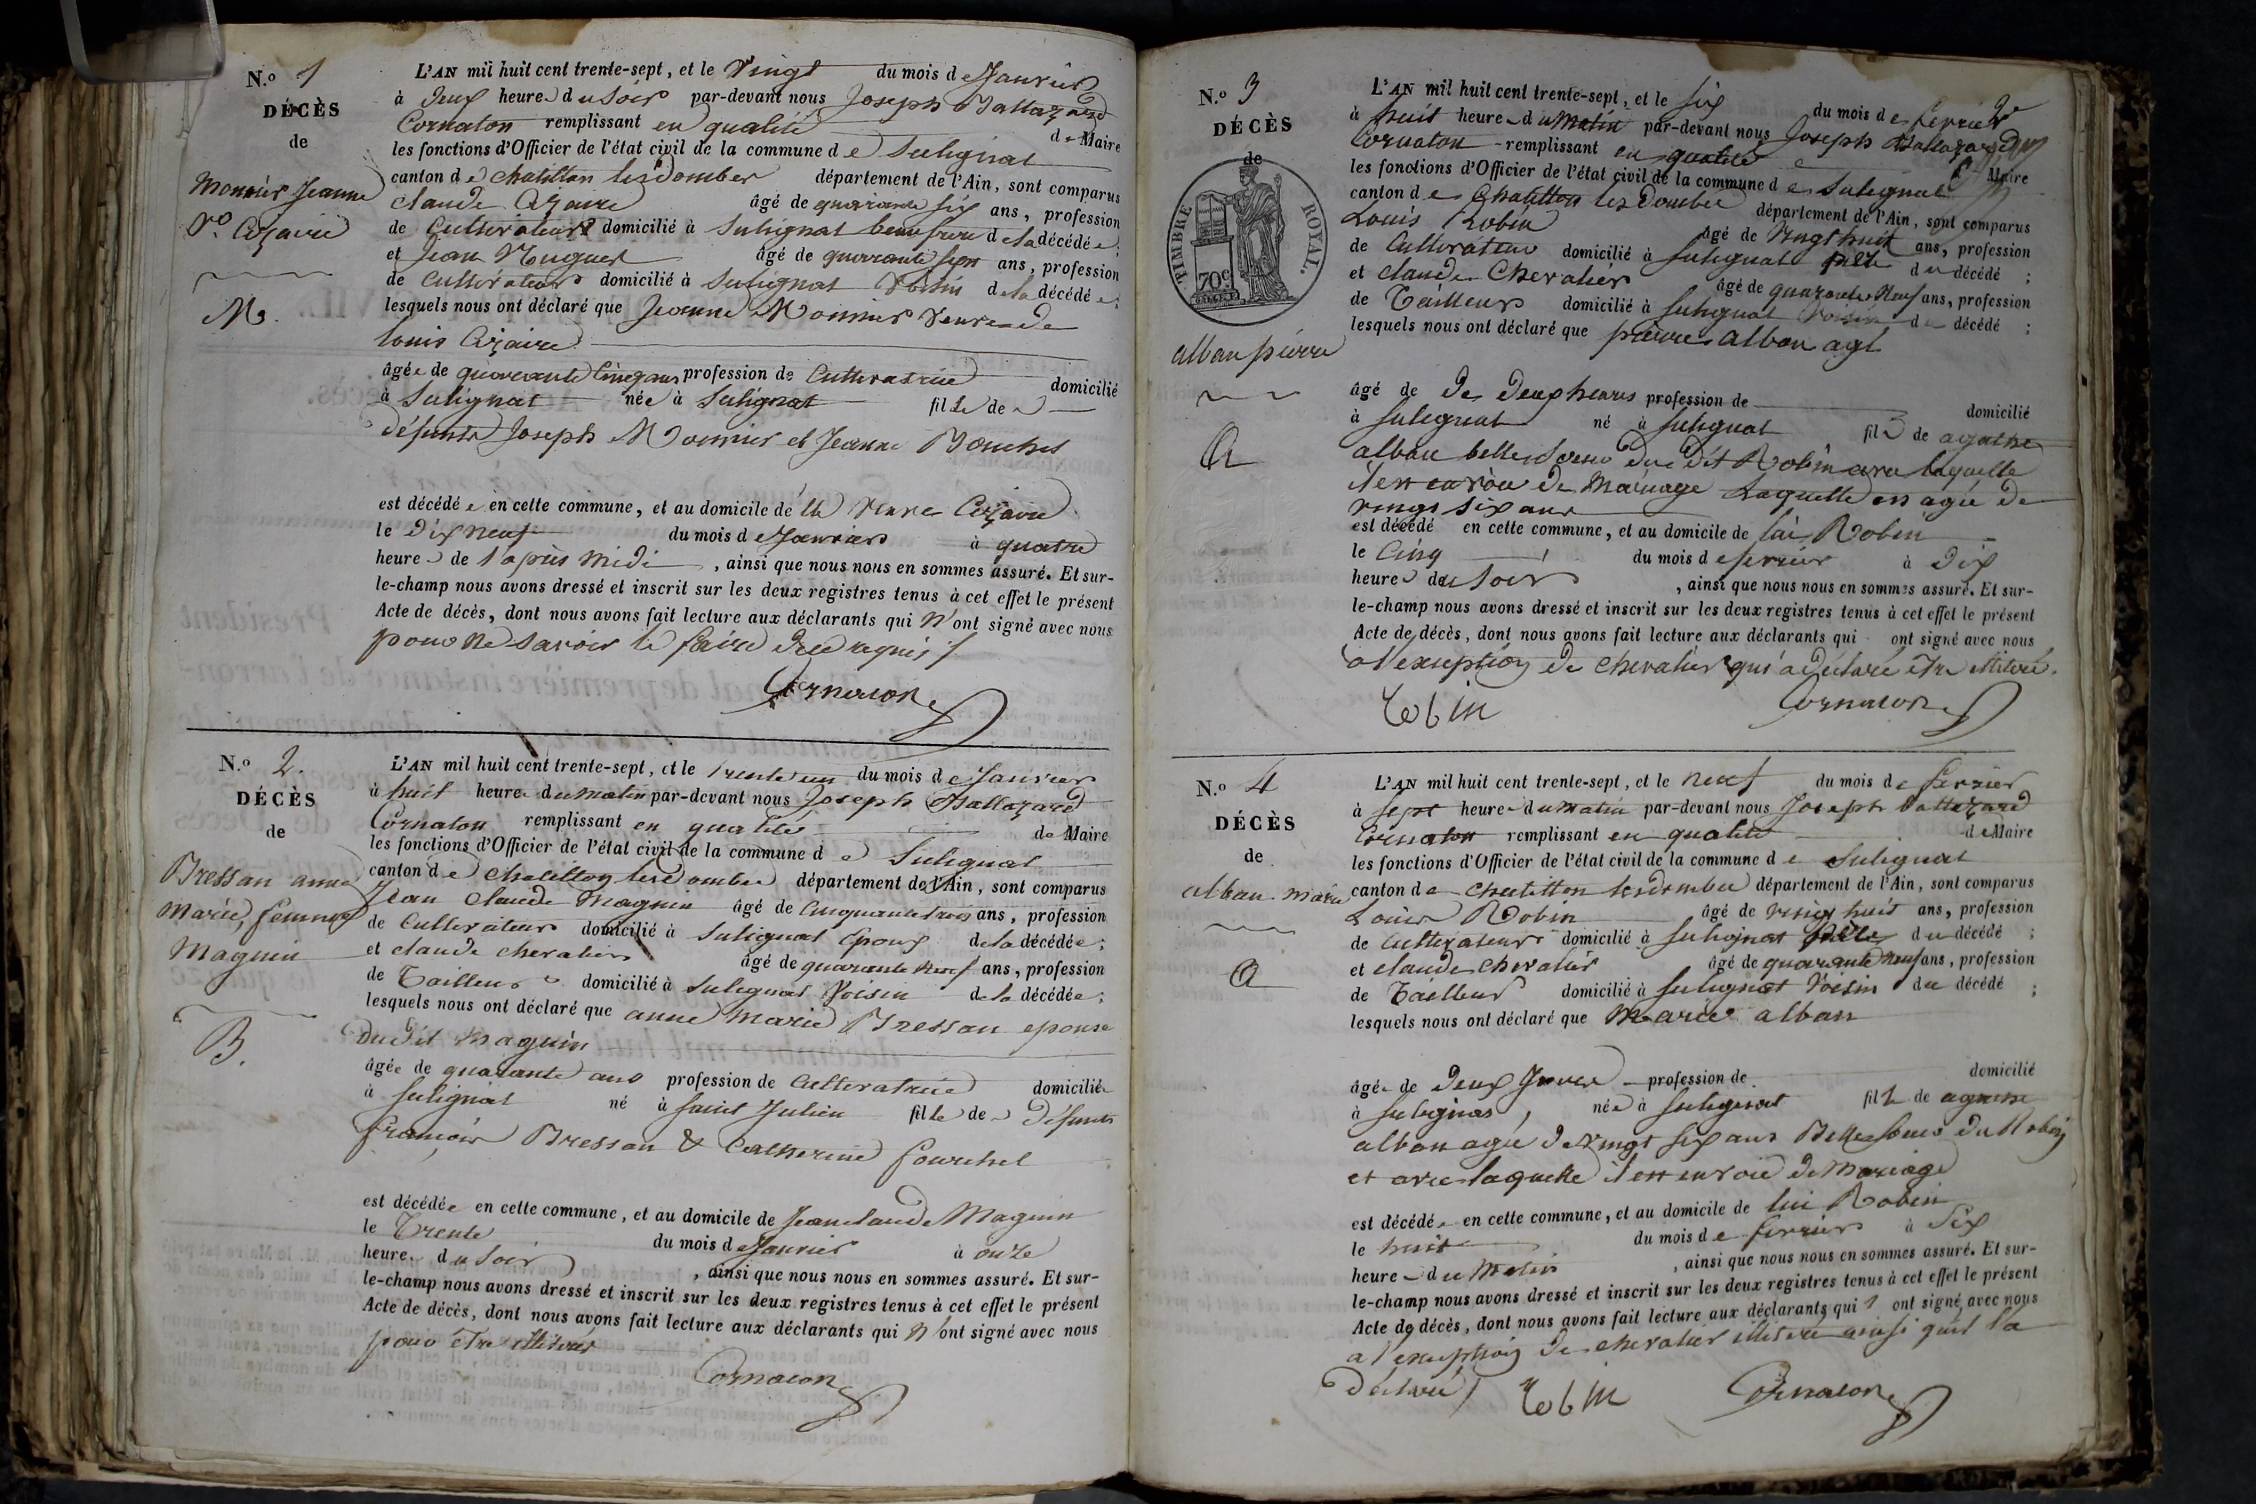 N.o 1
DÉCÈS
de
Monnier Jeanne
Ve. Cizaire
M.
L'AN mil huit cent trente-sept, et le Vingt du mois de Janvier
à Deux heures du Soir par-devant nous Joseph Baltazard
Cornaton remplissant en qualité de Maire
les fonctions d'Officier de l'état civil de la commune de Sulignat
canton de Chatillon les Dombes département de l'Ain, sont comparus
Claude Cizaire âgé de quarante six ans, profession
de Cultivateur domicilié à Sulignat beau frere de la décédée;
et Jean Nuguet âgé de quarante sept ans, profession
de Cultivateur domicilié à Sulignat Voisin de la décédée;
lesquels nous ont déclaré que Jeanne Monnier Veuve de
Louis Cizaire
âgée de quarante Cinq ans profession de Cultivatrice domicilié
à Sulignat née à Sulignat fille de
défunts Joseph Monnier et Jeanne Bouchet
est décédée en cette commune, et au domicile de la Veuve Cizaire
le Dix neuf du mois de Janvier à quatre
heures de l'après midi, ainsi que nous nous en sommes assuré. Et sur-
le-champ nous avons dressé et inscrit sur les deux registres tenus à cet effet le présent
Acte de décès, dont nous avons fait lecture aux déclarants qui n'ont signé avec nous
pour ne savoir le faire de ce requis
Cornaton
N.o 2.
DÉCÈS
de
Bressan anne
Marie, femme
Maguin
B.
L'AN mil huit cent trente-sept, et le trente un du mois de Janvier
à huit heures du matin par-devant nous Joseph Baltazard
Cornaton remplissant en qualité de Maire
les fonctions d'Officier de l'état civil de la commune de Sulignat
canton de Chatillon les Dombes département de l'Ain, sont comparus
Jean Claude Maguin âgé de Cinquante trois ans, profession
de Cultivateur domicilié à Sulignat Epoux de la décédée;
et Claude Chevalier âgé de quarante neuf ans, profession
de Tailleur domicilié à Sulignat Voisin de la décédée;
lesquels nous ont déclaré que anne Marie Bressan epouse
du dit Maguin
âgée de quarante ans profession de Cultivatrice domiciliée
à Sulignat né à Saint Julien fille de Défunts
françois Bressan & Catherine fourchet
est décédée en cette commune, et au domicile de Jean Claude Maguin
le Trente du mois de Janvier à onze
heures du Soir, ainsi que nous nous en sommes assuré. Et sur-
le-champ nous avons dressé et inscrit sur les deux registres tenus à cet effet le présent
Acte de décès, dont nous avons fait lecture aux déclarants qui n'ont signé avec nous
pour être illitérés
Cornaton
N.o 3
DÉCÈS
de
TIMBRE ROYAL.
70c
alban pierre
A
L'AN mil huit cent trente-sept, et le six du mois de fevrier
à huit heures du matin par-devant nous Joseph Baltazard
Cornaton remplissant en qualité de Maire
les fonctions d'Officier de l'état civil de la commune de Sulignat
canton de Chatillon les Dombes département de l'Ain, sont comparus
Louis Robin âgé de Vingt huit ans, profession
de Cultivateur domicilié à Sulignat du décédé;
et Claude Chevalier âgé de quarante Neuf ans, profession
de Tailleur domicilié à Sulignat Voisin du décédé;
lesquels nous ont déclaré que pierre alban agé
âgé de De Deux heures profession de domicilié
à Sulignat né à Sulignat fils de agathe
alban belle Soeur du dit Robin avec laquelle
il est en voie de Mariage Laquelle est agée de
vingt six ans
est décédé en cette commune, et au domicile de lui Robin
le Cinq du mois de fevrier à Dix
heures du Soir, ainsi que nous nous en sommes assuré. Et sur-
le-champ nous avons dressé et inscrit sur les deux registres tenus à cet effet le présent
Acte de décès, dont nous avons fait lecture aux déclarants qui ont signé avec nous
a l'exception de Chevalier qui a déclaré être illitéré.
Robin Cornaton
N.o 4
DÉCÈS
de
alban marie
A
L'AN mil huit cent trente-sept, et le neuf du mois de fevrier
à sept heures du matin par-devant nous Joseph Baltazard
Cornaton remplissant en qualité de Maire
les fonctions d'Officier de l'état civil de la commune de Sulignat
canton de Chatillon les Dombes département de l'Ain, sont comparus
Louis Robin âgé de vingt huit ans, profession
de Cultivateur domicilié à Sulignat du décédé;
et Claude Chevalier âgé de quarante neuf ans, profession
de Tailleur domicilié à Sulignat Voisin du décédé;
lesquels nous ont déclaré que Marie alban
âgée de Deux Jours profession de domicilié
à Sulignat, née à Sulignat fille de agathe
alban agée de vingt six ans Belle Soeur du Robin
et avec laquelle il est en voie de Mariage
est décédée en cette commune, et au domicile de lui Robin
le huit du mois de fevrier à Six
heures du Matin, ainsi que nous nous en sommes assuré. Et sur-
le-champ nous avons dressé et inscrit sur les deux registres tenus à cet effet le présent
Acte de décès, dont nous avons fait lecture aux déclarants qui ont signé avec nous
a l'exception de Chevalier illitéré ainsi qu'il l'a
déclaré
Robin Cornaton